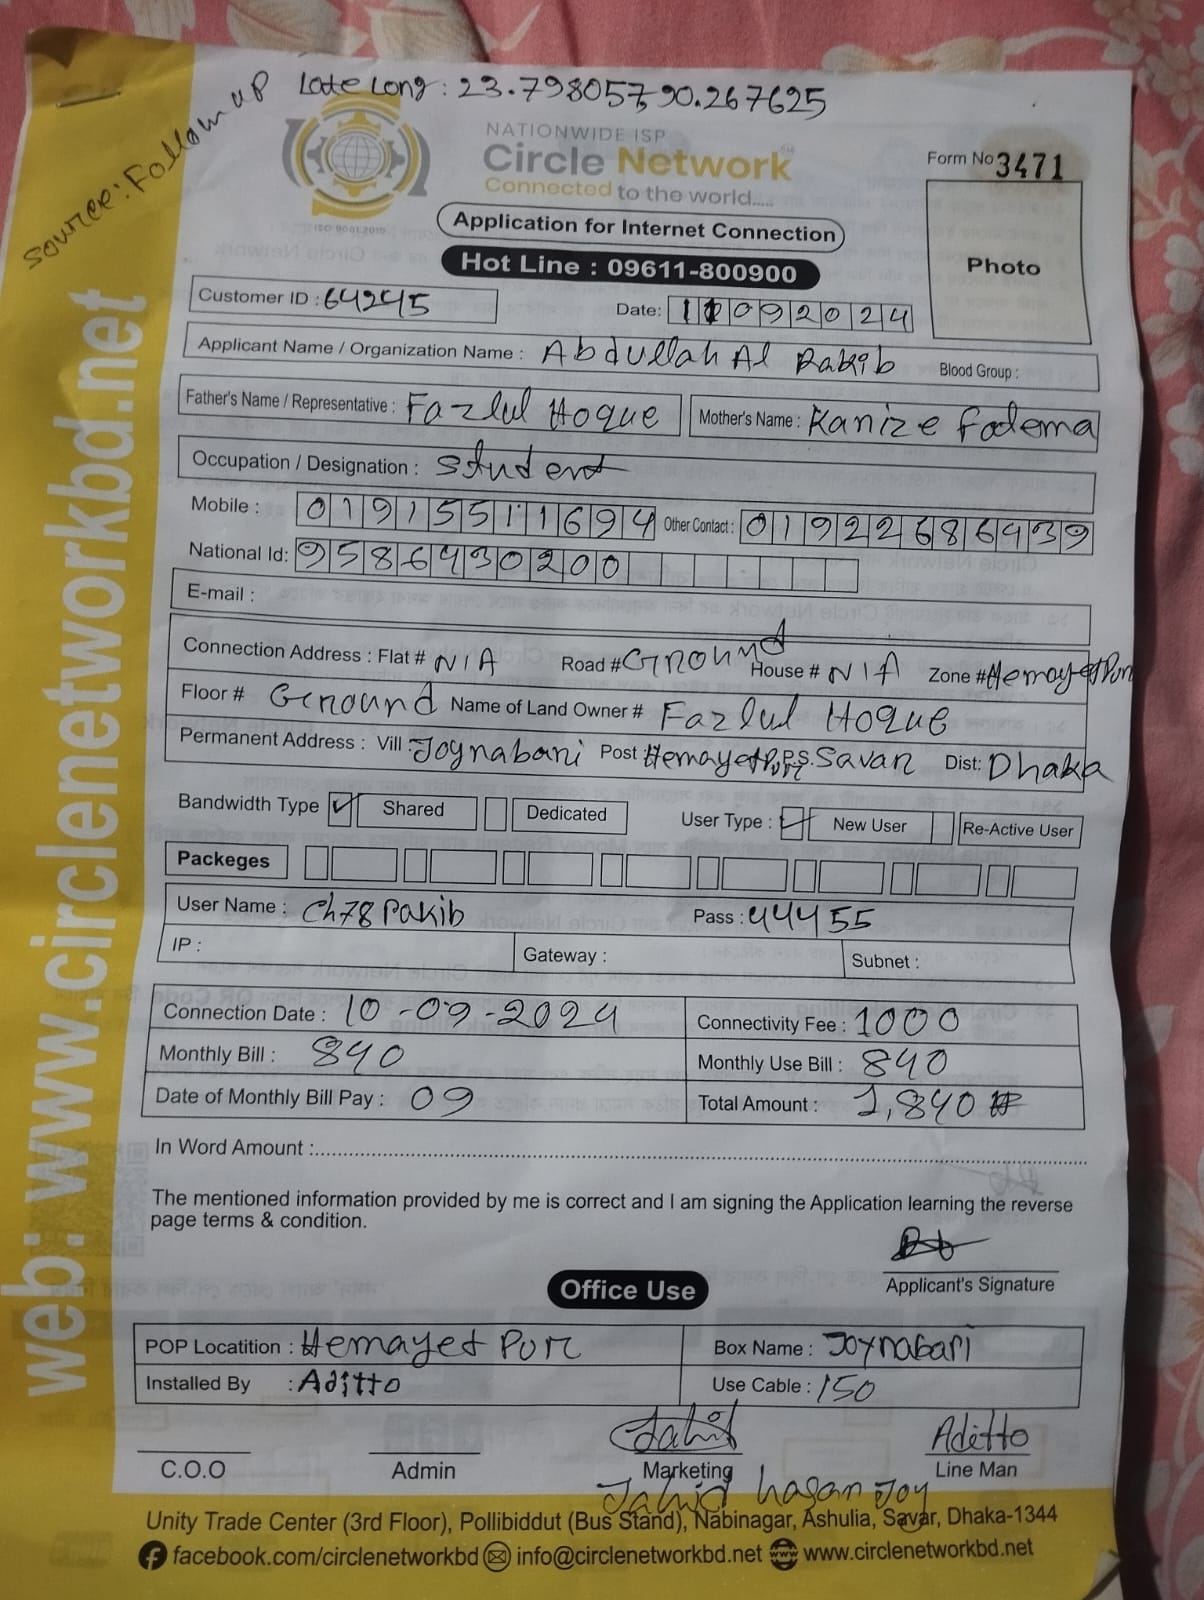 Late Long: 23.798057,90.267625
Source: Follow up
NATIONWIDE ISP
Circle Network
Connected to the world.....
ISO 9001:2015
Form No 3471
Application for Internet Connection
Hot Line : 09611-800900
Photo
Customer ID : 64245
Date: 11092024
Applicant Name / Organization Name : Abdullah Al Rakib Blood Group :
Father's Name / Representative : Fazlul Hoque Mother's Name : Kanize Fatema
Occupation / Designation : Student
Mobile : 01915511694 Other Contact : 01922686439
National Id: 9586430200
E-mail :
Connection Address : Flat # N/A Road # Ground House # N/A Zone # Hemayetpur
Floor # Ground Name of Land Owner # Fazlul Hoque
Permanent Address : Vill : Joynabari Post : Hemayetpur P.S. Savar Dist: Dhaka
Bandwidth Type Shared Dedicated User Type : New User Re-Active User
Packeges
User Name : Ch78Rakib Pass : 44455
IP : Gateway : Subnet :
Connection Date : 10-09-2024 Connectivity Fee : 1000
Monthly Bill : 840 Monthly Use Bill : 840
Date of Monthly Bill Pay : 09 Total Amount : 1,840
In Word Amount :
The mentioned information provided by me is correct and I am signing the Application learning the reverse
page terms & condition.
Applicant's Signature
Office Use
POP Locatition : Hemayet Pur Box Name : Joynabari
Installed By : Aditto Use Cable : 150
Jahid Aditto
C.O.O Admin Marketing Line Man
Jahid hasan Joy
Unity Trade Center (3rd Floor), Pollibiddut (Bus Stand), Nabinagar, Ashulia, Savar, Dhaka-1344
facebook.com/circlenetworkbd info@circlenetworkbd.net www.circlenetworkbd.net
web: www.circlenetworkbd.net